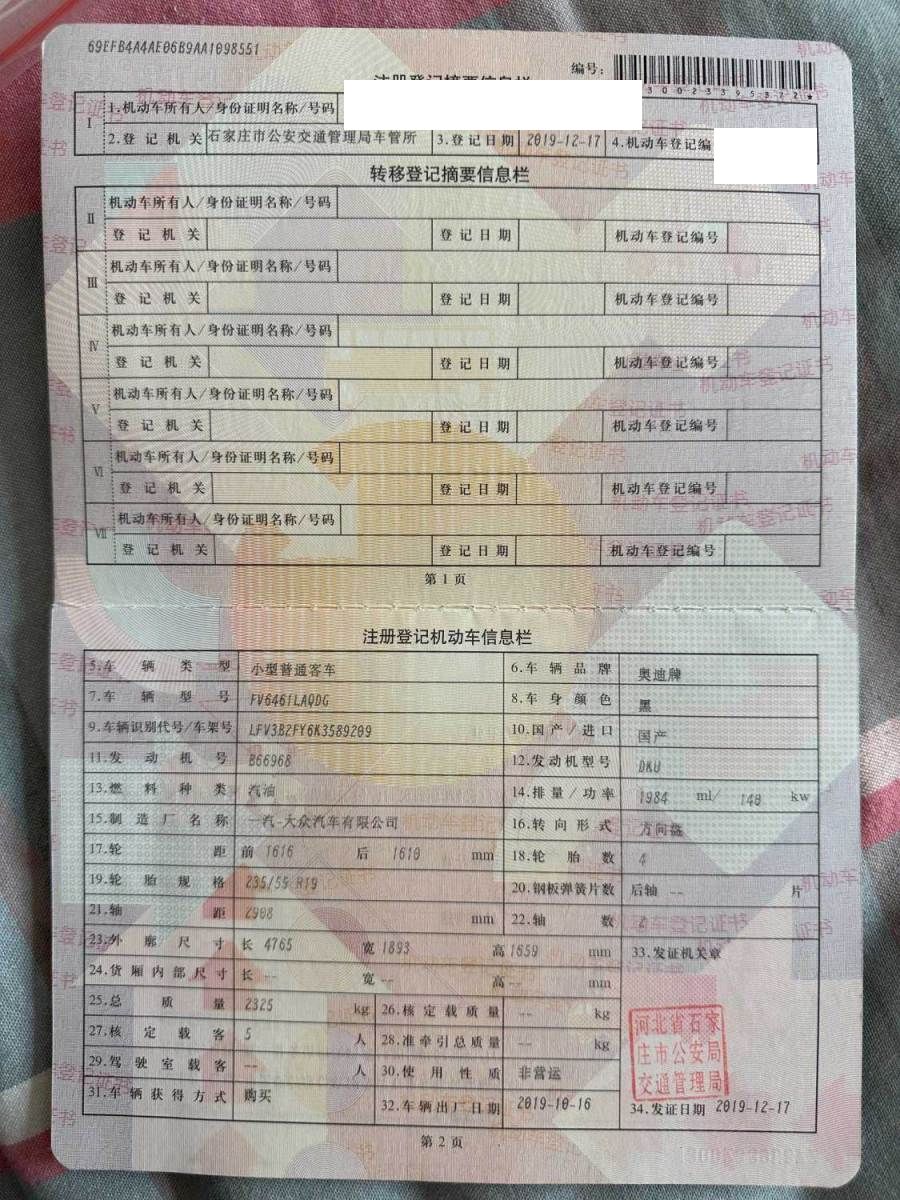 69EFB4A4AE06B9AA1098551
编号:
注册登记摘要信息栏
Ⅰ 1.机动车所有人/身份证明名称/号码
2.登记机关 石家庄市公安交通管理局车管所 3.登记日期 2019-12-17 4.机动车登记编
转移登记摘要信息栏
Ⅱ 机动车所有人/身份证明名称/号码
登记机关 登记日期 机动车登记编号
Ⅲ 机动车所有人/身份证明名称/号码
登记机关 登记日期 机动车登记编号
Ⅳ 机动车所有人/身份证明名称/号码
登记机关 登记日期 机动车登记编号
Ⅴ 机动车所有人/身份证明名称/号码
登记机关 登记日期 机动车登记编号
Ⅵ 机动车所有人/身份证明名称/号码
登记机关 登记日期 机动车登记编号
Ⅶ 机动车所有人/身份证明名称/号码
登记机关 登记日期 机动车登记编号
第1页
注册登记机动车信息栏
5.车辆类型 小型普通客车 6.车辆品牌 奥迪牌
7.车辆型号 FV6461LAQDG 8.车身颜色 黑
9.车辆识别代号/车架号 LFV3B2FY6K3589209 10.国产/进口 国产
11.发动机号 B66968 12.发动机型号 DKU
13.燃料种类 汽油 14.排量/功率 1984 ml/ 140 kw
15.制造厂名称 一汽-大众汽车有限公司 16.转向形式 方向盘
17.轮距 前 1616 后 1610 mm 18.轮胎数 4
19.轮胎规格 235/55 R19 20.钢板弹簧片数 后轴 -- 片
21.轴距 2908 mm 22.轴数 2
23.外廓尺寸 长 4765 宽 1893 高 1659 mm 33.发证机关章
24.货厢内部尺寸 长 -- 宽 -- 高 -- mm
25.总质量 2325 kg 26.核定载质量 -- kg
27.核定载客 5 人 28.准牵引总质量 -- kg
河北省石家
庄市公安局
交通管理局
29.驾驶室载客 -- 人 30.使用性质 非营运
31.车辆获得方式 购买 32.车辆出厂日期 2019-10-16 34.发证日期 2019-12-17
第2页